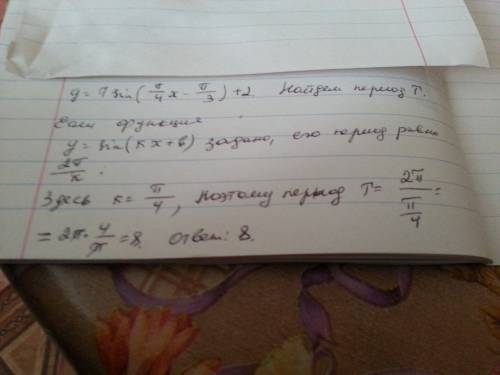 y = 7 sin(π/4 x - π/3) + 2. Найдем период T.
Если функция
y = sin(kx+b) задано, его период равно
2π/k.
Здесь k = π/4, поэтому период T = 2π/(π/4) =
= 2π · 4/π = 8. Ответ: 8.